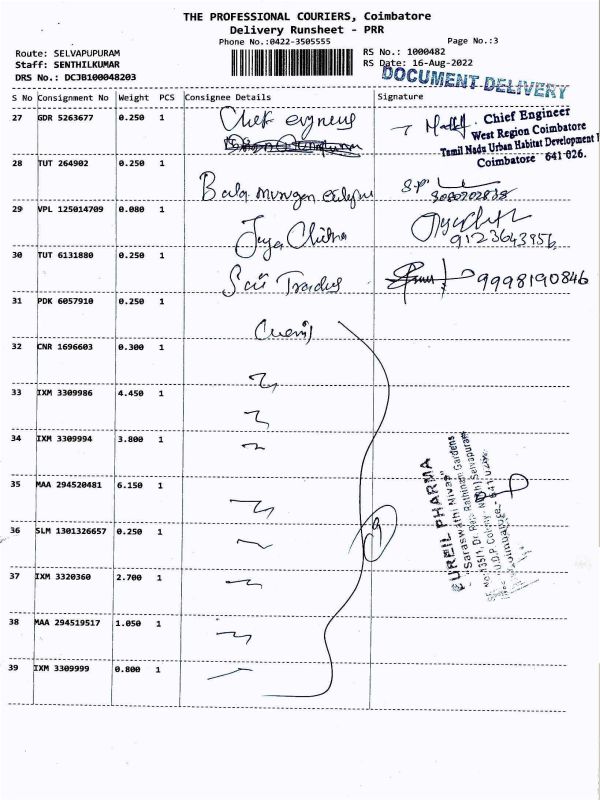 THE PROFESSIONAL COURIERS, Coimbatore
Delivery Runsheet - PRR
Phone No.:0422-3505555
Page No.:3
Route: SELVAPUPURAM
RS No.: 1000482
Staff: SENTHILKUMAR
RS Date: 16-Aug-2022
DRS No.: DCJB100048203
DOCUMENT DELIVERY
S No Consignment No Weight PCS Consignee Details Signature
27 GDR 5263677 0.250 1
Chief Engineer
West Region Coimbatore
Tamil Nadu Urban Habitat Development
Coimbatore 641 026.
28 TUT 264902 0.250 1 Bala murugan
29 VPL 125014709 0.080 1 Jeya Chitra 9123643956
30 TUT 6131880 0.250 1 Sai Traders 9998190846
31 PDK 6057910 0.250 1
32 CNR 1696603 0.300 1
33 IXM 3309986 4.450 1
34 IXM 3309994 3.800 1
35 MAA 294520481 6.150 1
36 SLM 1301326657 0.250 1
37 IXM 3320360 2.700 1
38 MAA 294519517 1.050 1
39 IXM 3309999 0.800 1
CUREIL PHARMA
"Saraswathi Nivas"